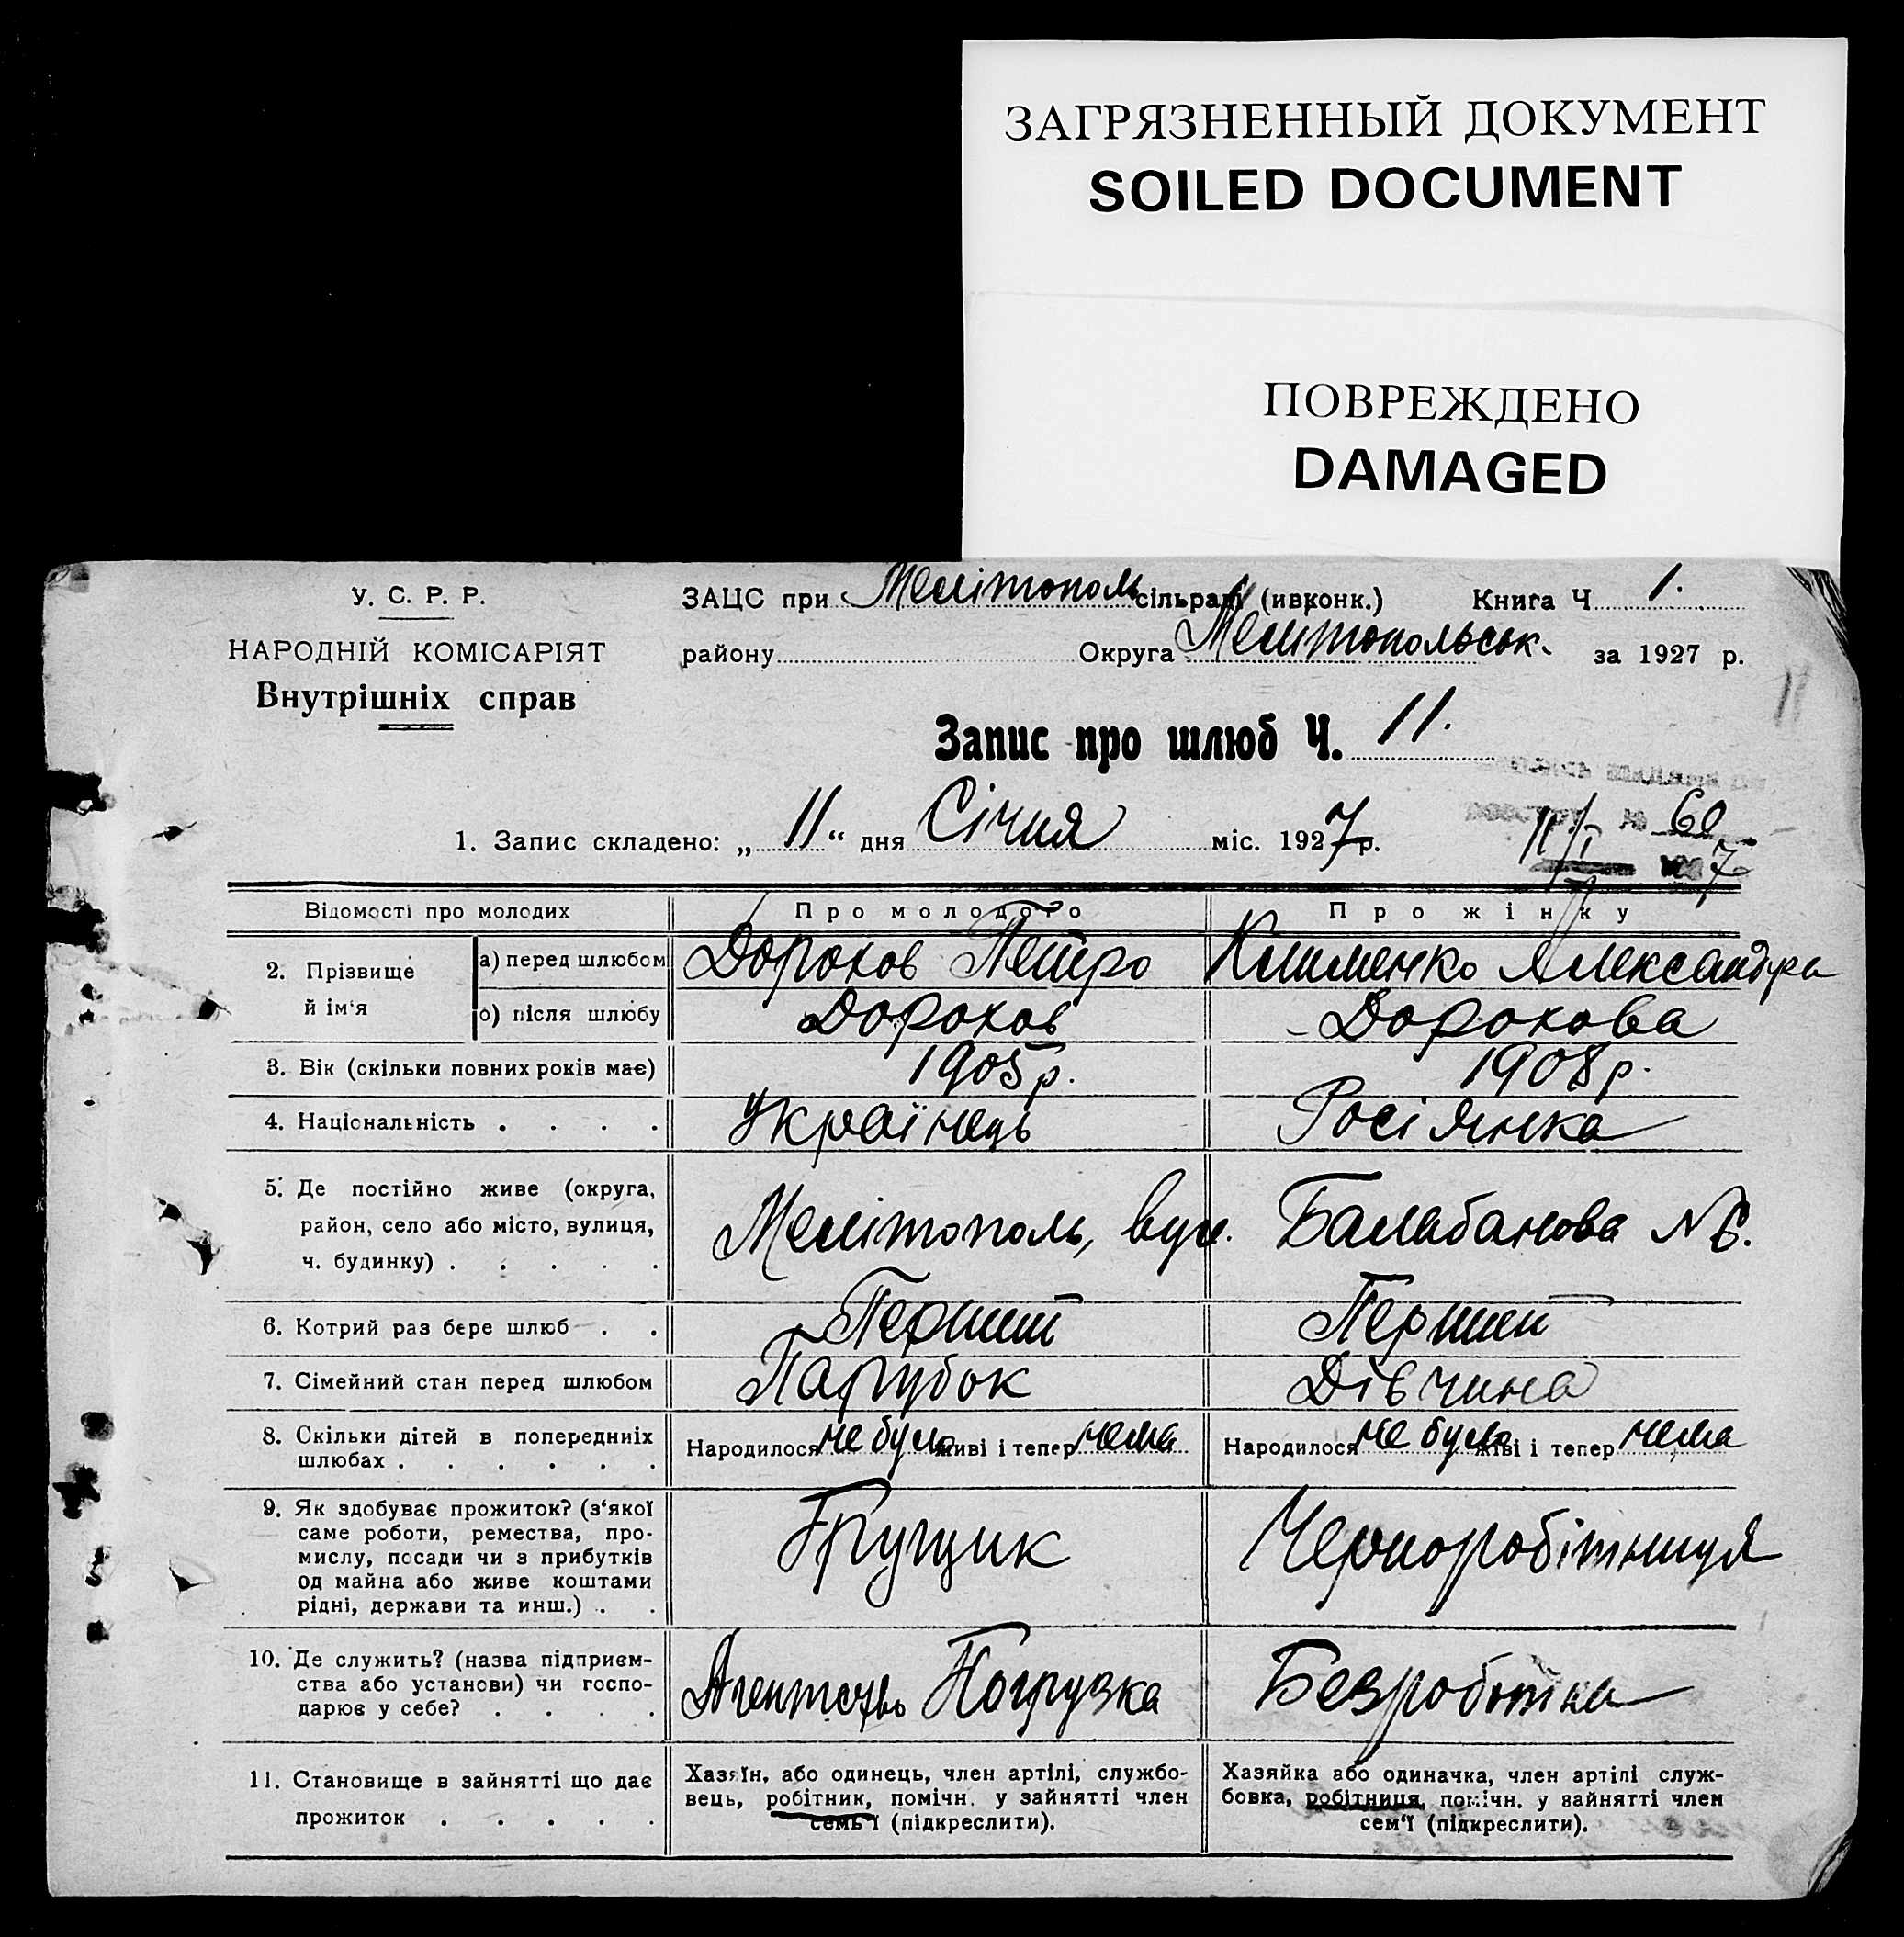 ЗАГРЯЗНЕННЫЙ ДОКУМЕНТ
SOILED DOCUMENT
ПОВРЕЖДЕНО
DAMAGED
У. С. Р. Р.
НАРОДНІЙ КОМІСАРІЯТ
Внутрішніх справ
ЗАЦС при Мелітополь сільраді (ивконк.) Книга Ч. 1.
району Округа Мелітопольськ. за 1927 р.
11
Запис про шлюб Ч. 11.
1. Запис складено: „ 11 “ дня Січня міс. 1927 р.
11/I 60
7
Відомості про молодих Про молодого Про жінку
2. Прізвище й ім‘я а) перед шлюбом Дорохов Петро Клименко Александра
б) після шлюбу Дорохов Дорохова
3. Вік (скільки повних років має) 1905 р. 1908 р.
4. Національність . . . . Українець Росіянка
5. Де постійно живе (округа,
район, село або місто, вулиця, Мелітополь, вул. Балабанова № 6.
ч. будинку) . . . . .
6. Котрий раз бере шлюб . . Перший Перший
7. Сімейний стан перед шлюбом Парубок Дівчина
8. Скільки дітей в попередниіх Народилося не було живі і тепер нема Народилося не було живі і тепер нема
шлюбах . . . . . .
9. Як здобуває прожиток? (з‘якої
саме роботи, ремества, про-
мислу, посади чи з прибутків Грущик Черноробітниця
од майна або живе коштами
рідні, держави та инш.) . .
10. Де служить? (назва підприєм-
ства або установи) чи госпо- Агентство Погрузка Безробітна
дарює у себе? . . . .
11. Становище в зайнятті що дає
прожиток . . . . .
Хазяїн, або одинець, член артілі, службо-
вець, робітник, помічн. у зайнятті член
семь‘ї (підкреслити).
Хазяйка або одиначка, член артілі служ-
бовка, робітниця, помічн. у зайнятті член
сем‘ї (підкреслити).